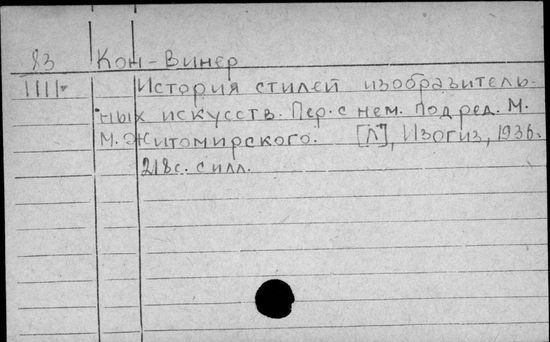 83 Кон-Винер
IIII- История стилей изобразитель-
ных искусств. Пер. с нем. Под ред. М.
М. Житомирского. [Л], Изогиз, 1936.
218 с. с илл.